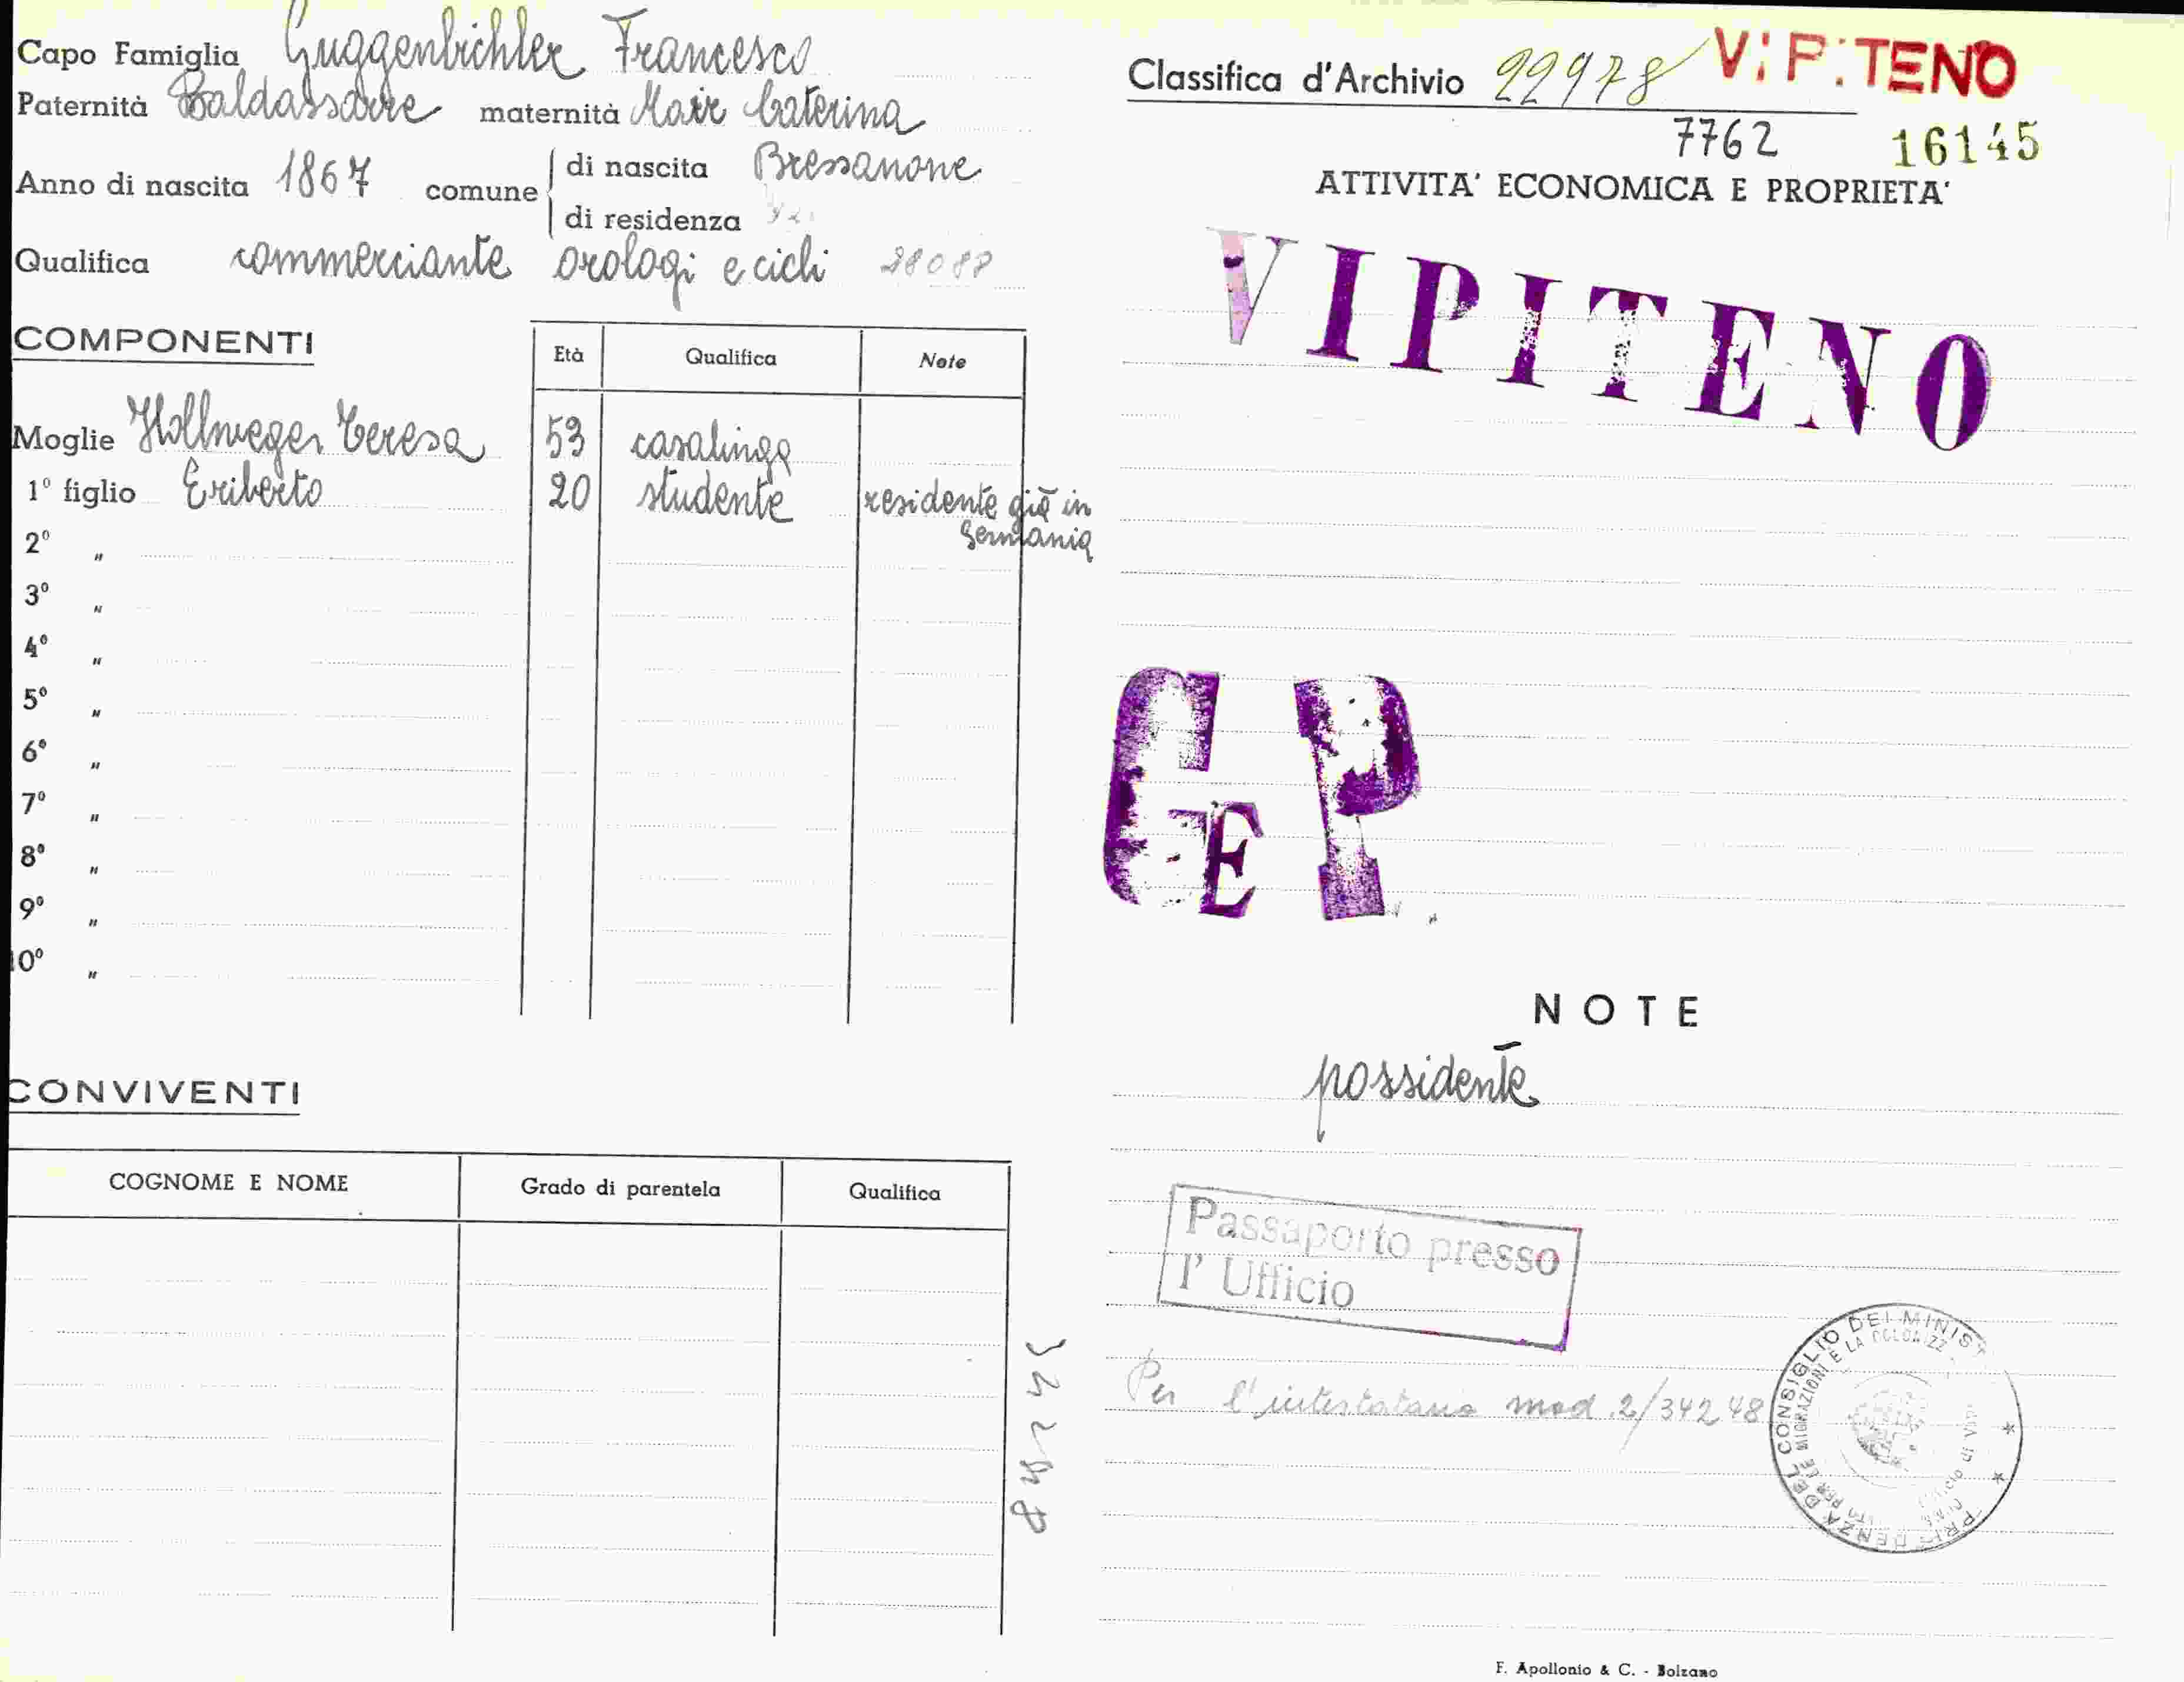 Capo Famiglia Guggenbichler Francesco
Paternità Baldassarre maternità Mair Caterina
Anno di nascita 1867 comune di nascita Bressanone
di residenza
Qualifica commerciante orologi e cicli 28088
COMPONENTI
Età Qualifica Note
Moglie Hollnweger Teresa 53 casalinga
1° figlio Eriberto 20 studente residente già in Germania
2° "
3° "
4° "
5° "
6° "
7° "
8° "
9° "
10° "
CONVIVENTI
COGNOME E NOME Grado di parentela Qualifica
34248
Classifica d'Archivio 22978 VIPITENO
7762 16145
ATTIVITA' ECONOMICA E PROPRIETA'
VIPITENO
GEP
NOTE
possidente
Passaporto presso
l' Ufficio
Per l'intestatario mod. 2/34248
DEL CONSIGLIO DEI MINIS
PER LE MIGRAZIONI E LA COLONIZZ
F. Apollonio & C. - Bolzano